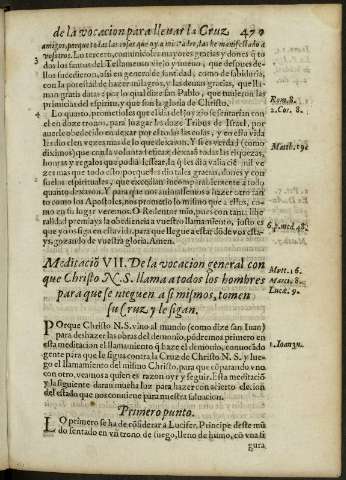 de la vocacion para lleuar la Cruz. 479
amigos, porque todas las cosas que oy a mi Padre, las he manifestado a
vosotros. Lo tercero, comunicoles mayores gracias y dones, q̃ to
3
dos los santos del Testamento viejo y nueuo, que despues de-
llos sucedieron, assi en genero de santidad, como de sabiduria,
con la potestad de hazer milagros, y las demas gracias, que lla-
man gratis datas: por lo qual dize san Pablo, que tuuieron las
primicias del espiritu, y que son la gloria de Christo.
Rom. 8.
2. Cor. 8.
Lo quarto, prometioles que el dia del juyzio se sentarian con
4
el en doze tronos, para juzgar los doze Tribus de Israel, por
auerle obedecido en dexar por el todas las cosas, y en esta vida
les dio cien vezes mas de lo que dexaron. Y si es verdad (como
Matth. 19.
diximos) que con la voluntad eficaz dexaron todas las riquezas,
honras y regalos que podiã dessear, lo q̃ les dio valia ciẽ mil ve
zes mas que todo esto, porque les dio tales gracias, dones y con
suelos espirituales, que excedian incomparablemente a todo
quanto dexaron. Y para que nos animassemos a hazer otro tan
to como los Apostoles, nos prometio lo mismo que a ellos, co-
mo en su lugar veremos. O Redentor mio, pues con tanta libe-
ralidad premiays la obediencia a vuestro llamamiento, justo es
6. p. med. 48.
que yo os siga en esta vida, para que llegue a estar dõ de vos esta-
ys, gozando de vuestra gloria. Amen.
Meditació VII. De la vocacion general con
que Christo N. S. llama a todos los hombres
Matt. 16.
Marci. 8.
para que se nieguen a si mismos, tomen
Lucæ. 9.
su Cruz y le sigan.
POrque Christo N. S. vino al mundo (como dize san Iuan)
para deshazer las obras del demonio, podremos primero en
1. Ioan. 3.
esta meditacion el llamamiento q̃ haze el demonio, conuocãdo
gente para que le sigua contra la Cruz de Christo N. S. y lue-
go el llamamiento del mismo Christo, para que cõparando vno
con otro, veamos a quien es razon oyr y seguir. Esta meditaciõ
y la siguiente daran mucha luz para hazer con acierto elecion
del estado que nos conuiene para nuestra saluacion.
Primero punto.
LO primero se ha de cõsiderar a Lucifer, Principe deste mũ
do sentado en vn trono de fuego, lleno de humo, cõ vna fi
gura